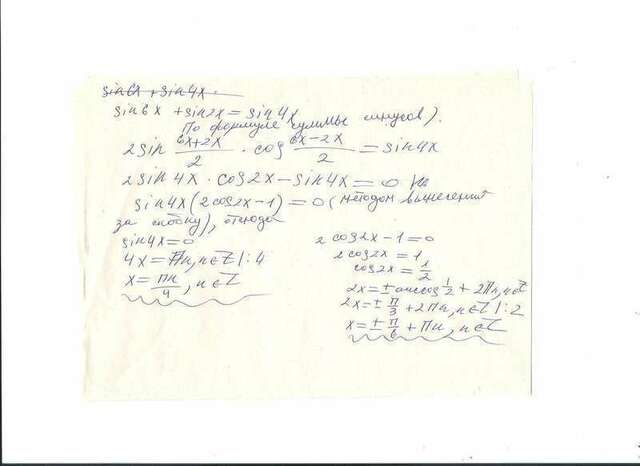 sin6x + sin4x.
sin6x + sin2x = sin4x
По формуле суммы синусов).
2sin (6x+2x)/2 · cos (6x-2x)/2 = sin4x
2sin4x · cos2x - sin4x = 0
sin4x(2cos2x-1) = 0 (методом вынесения
за скобку), отсюда
sin4x = 0
4x = πn, n∈Z |:4
x = πn/4, n∈Z
2cos2x-1=0
2cos2x=1,
cos2x = 1/2
2x = ± arccos 1/2 + 2πn, n∈Z
2x = ± π/3 + 2πn, n∈Z |:2
x = ± π/6 + πn, n∈Z